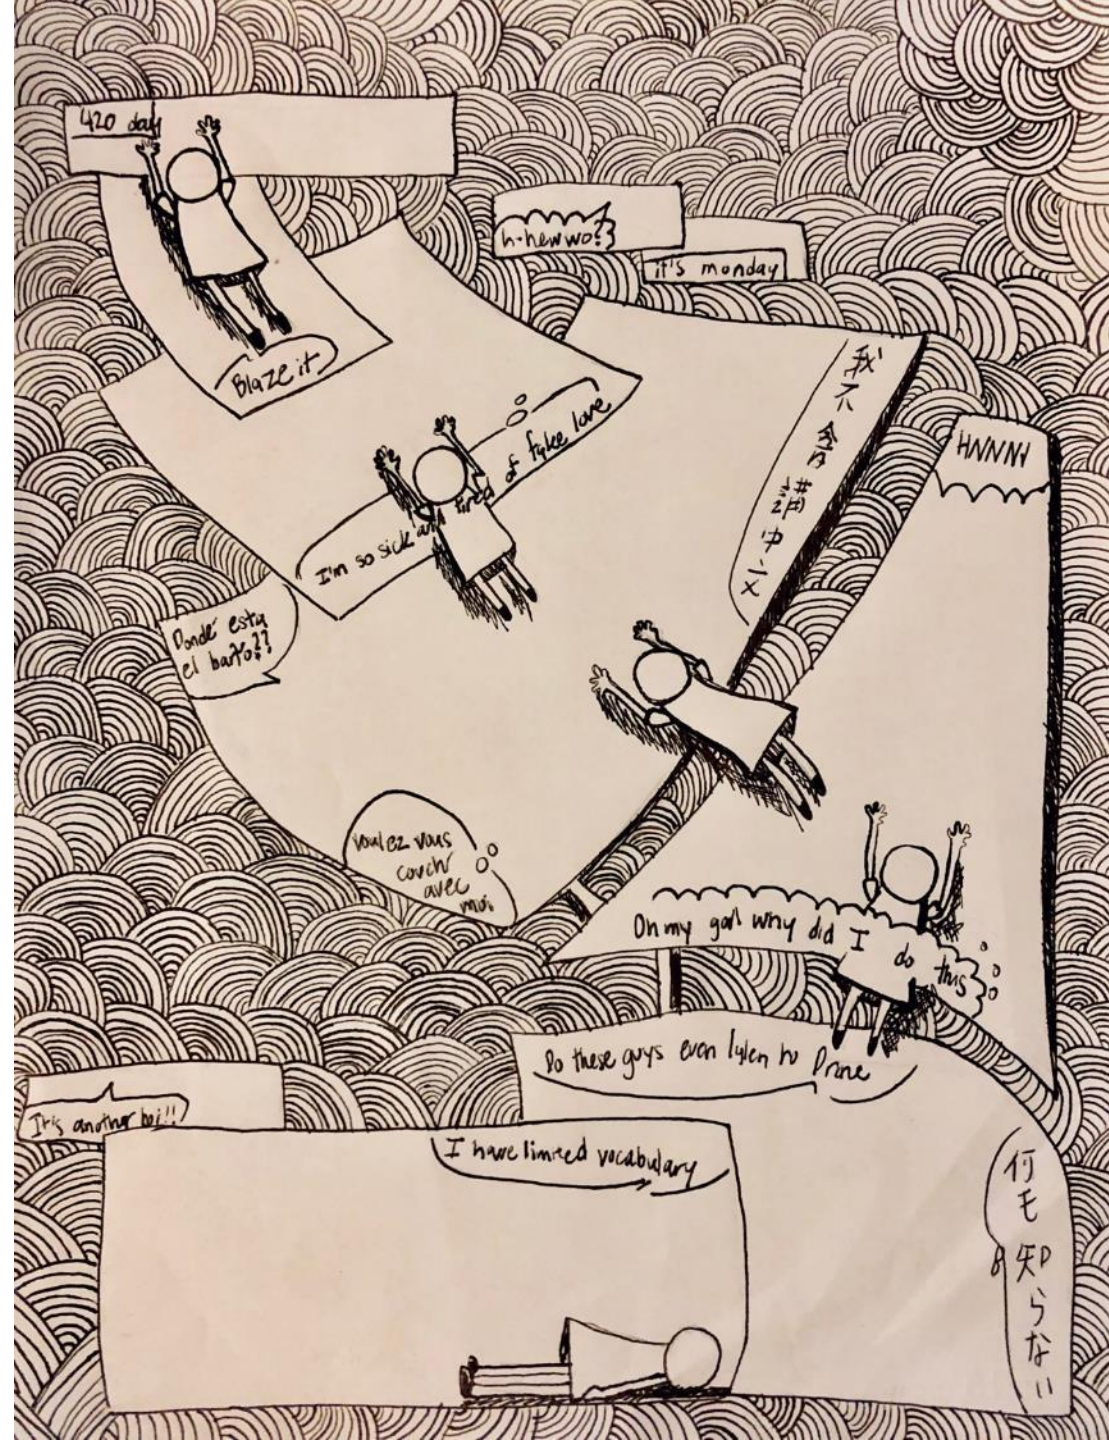 420 day
Blaze it
h-hewwo?
it's monday
I'm so sick and tired of fake love
我不會講中文
HNNNN
Donde esta
el baño??
voulez vous
couch
avec
moi
Oh my gosh why did I do this
Do these guys even listen to Prone
It's another boi!!
I have limited vocabulary
何も知らない